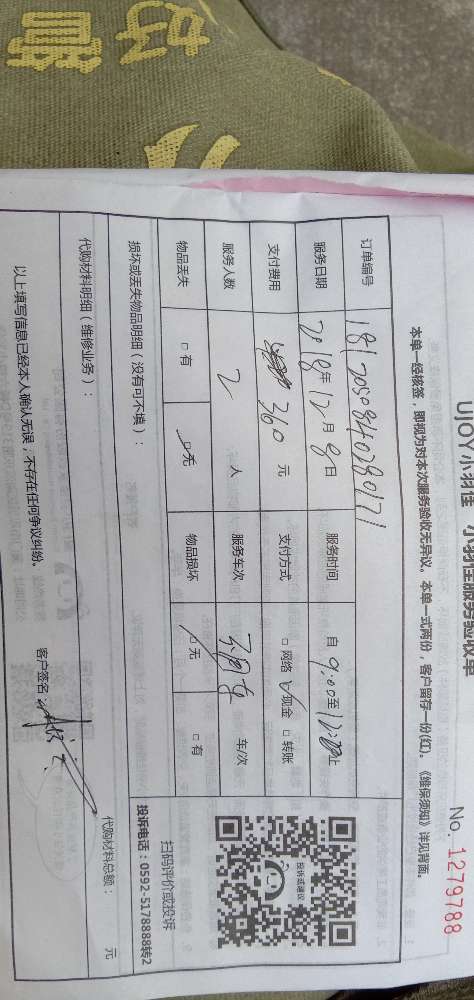 好
UJOY小羽佳 小羽佳服务验收单
No. 1279788
本单一经核签，即视为对本次服务验收无异议。本单一式两份，客户留存一份(红)。《维保须知》详见背面。
订单编号 1812050840280171
服务日期 2018年12月8日 服务时间 自 9:00至 止
支付费用 360 元 支付方式 □网络 ☑现金 □转账
服务人数 2 人 服务车次 车/次
物品丢失 □有 ☑无 物品损坏 ☑无 □有
投诉或建议
扫码评价或投诉
投诉电话：0592-5178888转2
损坏或丢失物品明细（没有可不填）：
代购材料明细（维修业务）：
代购材料总额： 元
以上填写信息已经本人确认无误，不存在任何争议纠纷。
客户签名：